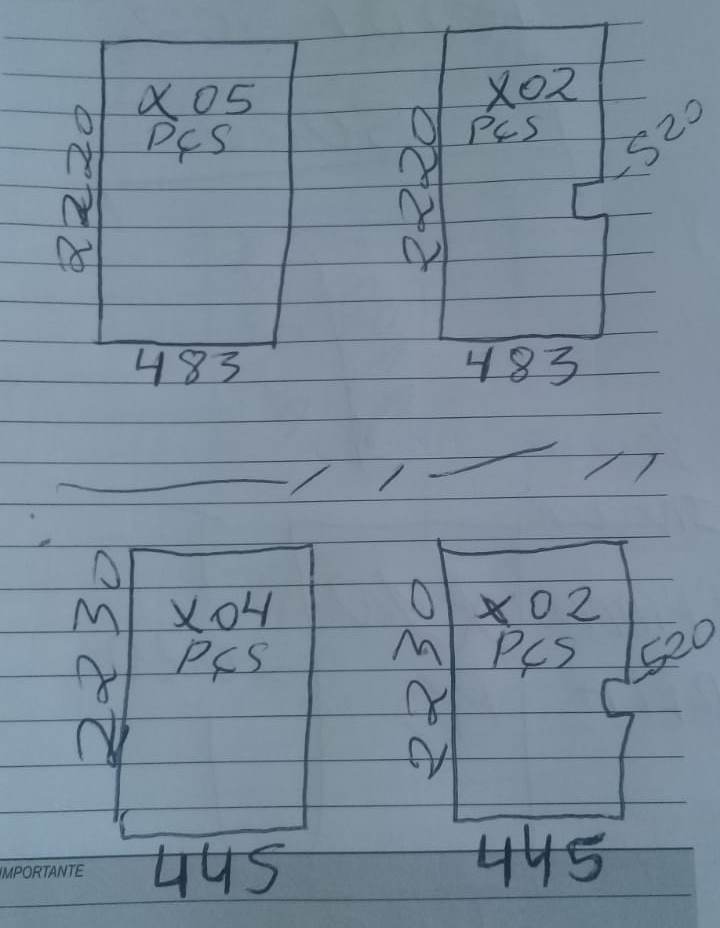 X05
PÇS
2220
483
X02
PÇS
2220
520
483
X04
PÇS
2230
445
X02
PÇS
2230
520
445
IMPORTANTE